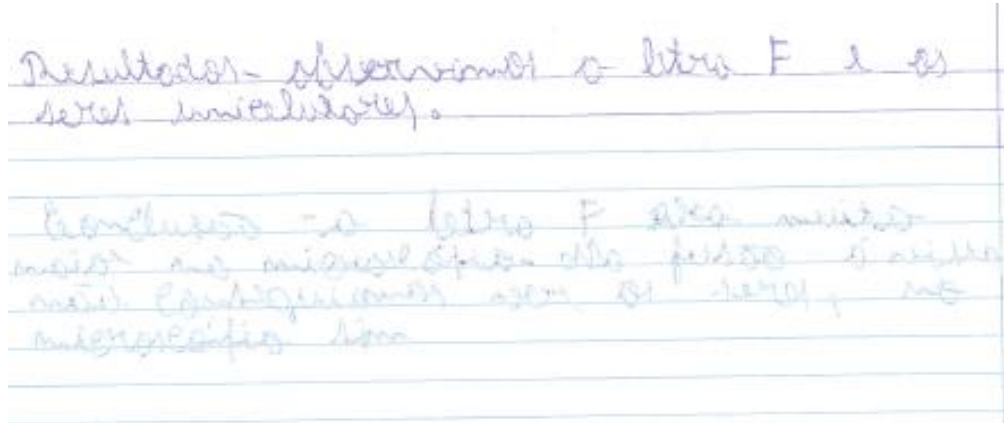 Resultados- observámos a letra F e os
seres unicelulares.
Conclusão - a letra F era muito
maior no microscópio do
não conseguiamos ver os seres, no
microscópio sim